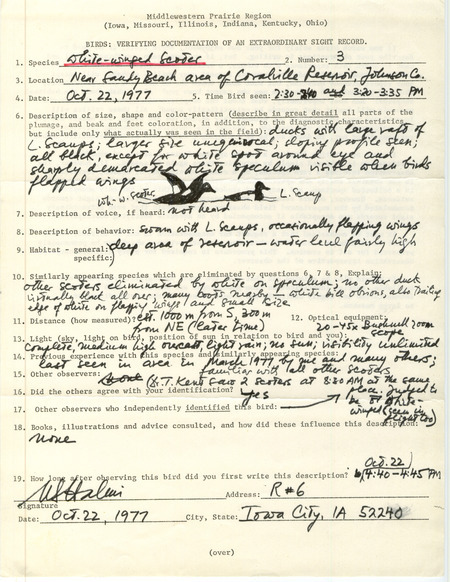 Middlewestern Prairie Region
(Iowa, Missouri, Illinois, Indiana, Kentucky, Ohio)
BIRDS: VERIFYING DOCUMENTATION OF AN EXTRAORDINARY SIGHT RECORD.
1. Species White-winged Scoter 2. Number: 3
3. Location: Near Sandy Beach area of Coralville Reservoir, Johnson Co.
4. Date: Oct. 22, 1977 5. Time Bird seen: 2:30-2:40 and 3:20-3:35 PM
6. Description of size, shape and color-pattern (describe in great detail all parts of the
plumage, and beak and feet coloration, in addition, to the diagnostic characteristics,
but include only what actually was seen in the field): ducks with large raft of
L. Scaups; larger size unequivocal; sloping profile seen;
all black, except for white spot around eye and
sharply demarcated white speculum visible when birds
flapped wings
Wh.-w. Scoter L. Scaup
7. Description of voice, if heard: not heard
8. Description of behavior: swam with L. Scaups, occasionally flapping wings
9. Habitat - general: deep area of reservoir - water level fairly high
specific:
10. Similarly appearing species which are eliminated by questions 6, 7 & 8, Explain:
other scoters eliminated by white on speculum; no other duck
virtually black all over; many coots nearby - white bill obvious, also trailing
edge of white on flapping wings and small size
11. Distance (how measured): est. 1000 m from S, 300 m
from NE (later time)
12. Optical equipment:
20-45x Bushnell zoom
13. Light (sky, light on bird, position of sun in relation to bird and you): scope
complete, medium high overcast, light rain; no sun; visibility unlimited
14. Previous experience with this species and similarly appearing species:
last seen in area in March 1977 by me and many others;
familiar with all other scoters
15. Other observers: (T. Kent saw 2 scoters at 8:30 AM at the same
place. Judged to
be White-
winged (seen in
flight too)
16. Did the others agree with your identification? yes
17. Other observers who independently identified this bird:
18. Books, illustrations and advice consulted, and how did these influence this description:
none
19. How long after observing this bird did you first write this description? Oct. 22, 4:40-4:45 PM
Signature Address: R#6
Date: Oct. 22, 1977 City, State: Iowa City, IA 52240
(over)